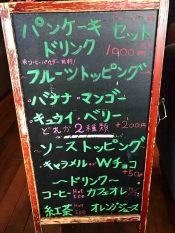 パンケーキ セット
ドリンク 1900円
フルーツトッピング
バナナ・マンゴー
キュウイ・ベリー
どれか2種類 +200円
ソーストッピング
キャラメル・Wチョコ
+50円
〜ドリンク〜
コーヒー Hot ICE カフェオレ Hot ICE
紅茶 Hot ICE オレンジジュース